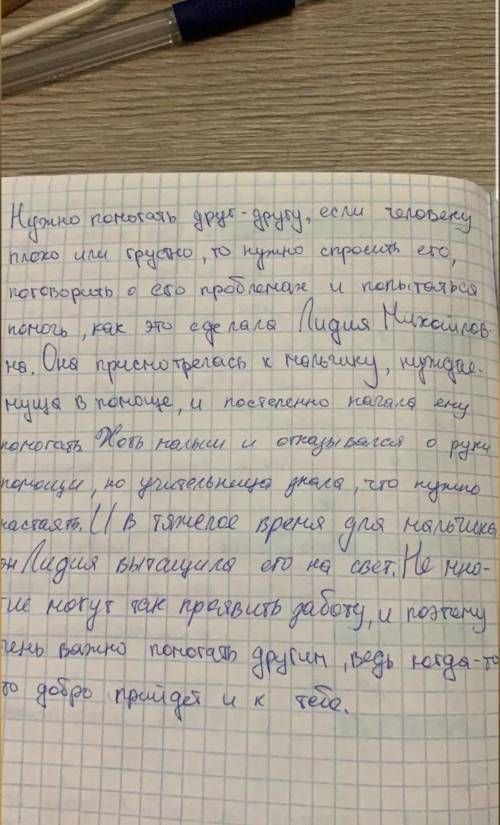 Нужно помогать друг-другу, если человеку
плохо или грустно, то нужно спросить его,
поговорить о его проблемах и попытаться
помочь, как это сделала Лидия Михайлов-
на. Она присмотрелась к мальчику, нуждае-
муща в помоще, и постепенно начала ему
помогать. Хоть малыш и отказывался о руки
помощи, но учительница знала, что нужно
настаять. И в тяжелое время для мальчика
Лидия вытащила его на свет. Не мно-
гие могут так проявить заботу, и поэтому
чень важно помогать другим, ведь когда-то
то добро прийдет и к тебе.